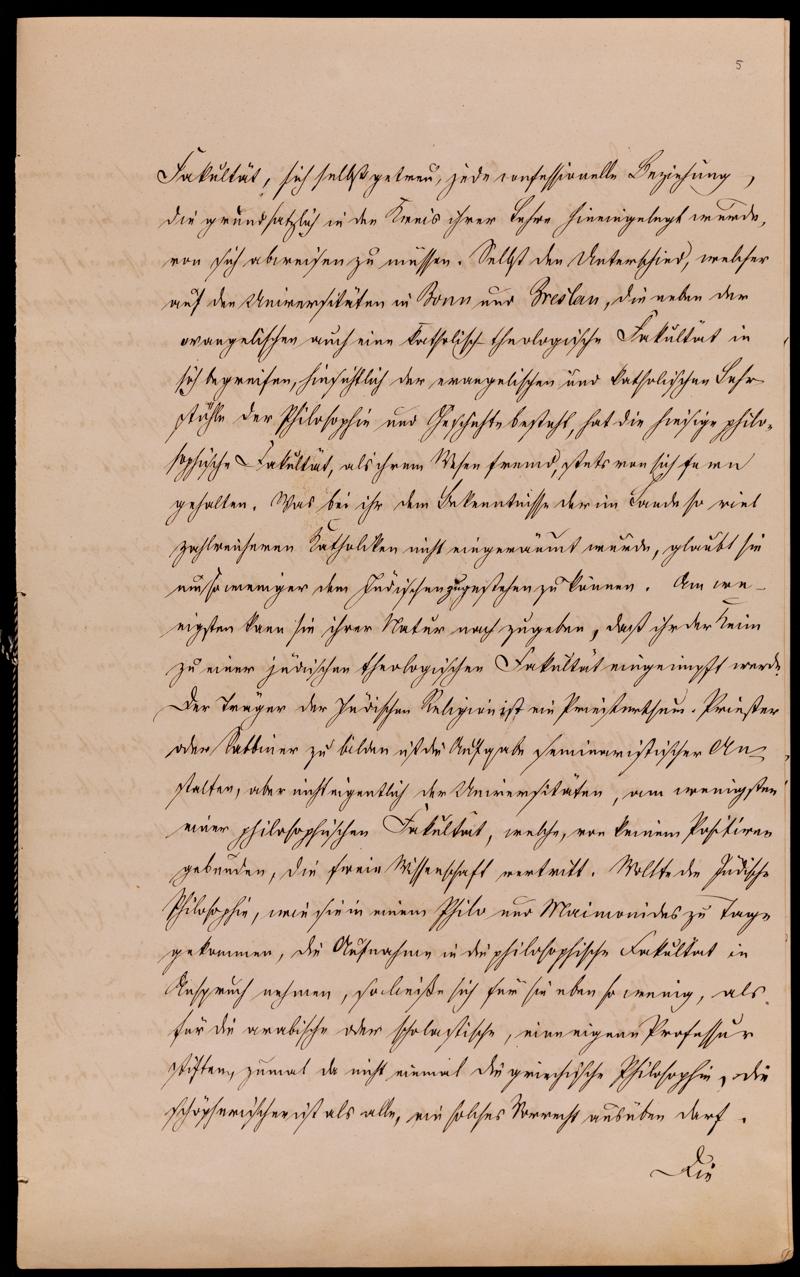 5
Fakultät, sich selbst getreu, jede confessionelle Beziehung,
die grundsätzlich in den Kreis ihrer Lehre hineingelegt würde,
von sich abweisen zu müssen. Selbst den Unterschied, welcher
auf den Universitäten in Bonn und Breslau, die neben der
evangelischen auch eine katholisch theologische Fakultät in
sich begreifen, hinsichtlich der evangelischen und katholischen Lehr-
stühle der Philosophie und Geschichte besteht, hat die hiesige philo-
sophische Fakultät, als ihrem Wesen fremd, stets von sich fern
gehalten. Was bei ihr dem Bekenntnisse der im Lande so viel
zahlreicheren Katholiken nicht eingeräumt wurde, glaubt sie
um so weniger dem Jüdischen zugestehen zu können. Am we-
nigsten kann sie ihrer Natur nach zugeben, daß ihr der Keim
zu einer jüdischen theologischen Fakultät eingeimpft werde.
Der Träger der Jüdischen Religion ist ein Priesterthum. Priester
oder Rabbiner zu bilden ist die Aufgabe seminaristischer An-
stalten, aber nicht eigentlich der Universitäten, am wenigsten
einer philosophischen Fakultät, welche, von keinem Positiven
gebunden, die freie Wissenschaft vertritt. Wollte die Jüdische
Philosophie, wie sie in einem Philo und Maimonides zu Tage
gekommen, die Aufnahme in die philosophische Fakultät in
Anspruch nehmen, so ließe sich für sie eben so wenig, als
für die arabische oder scholastische, eine eigene Professur
stiften, zumal da nicht einmal die griechische Philosophie, die
schöpferischer ist als alle, ein solches Vorrecht ausüben darf.
Die